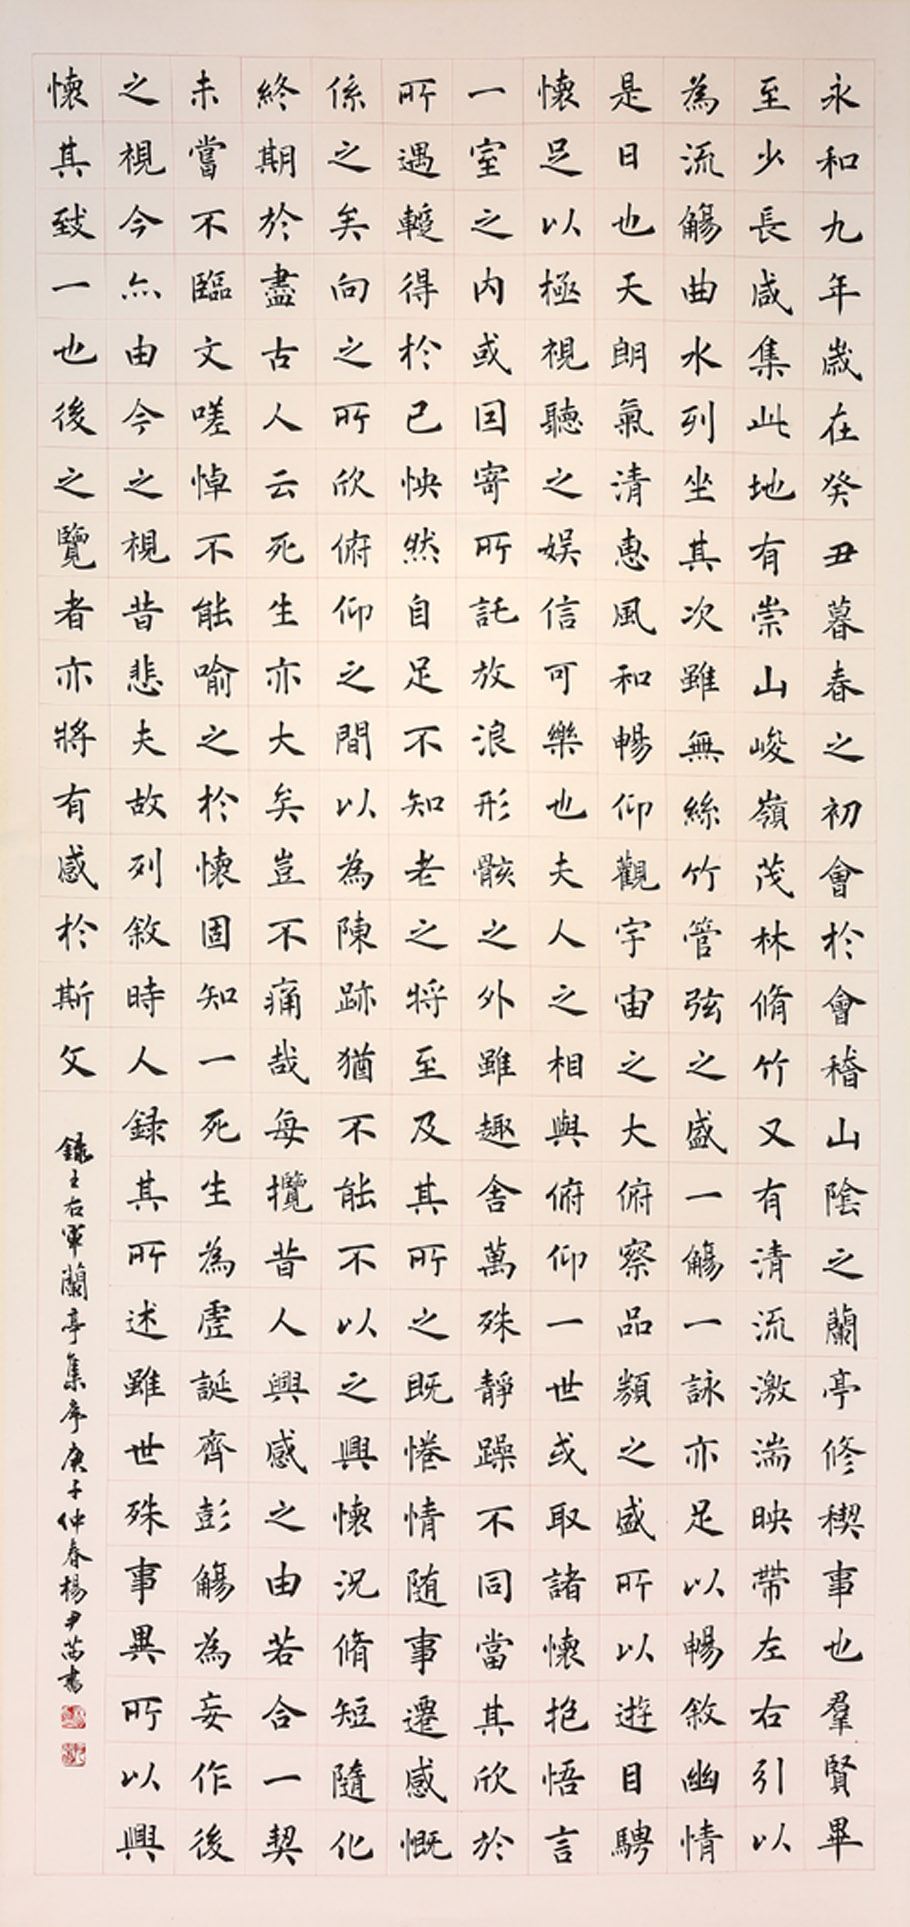 永和九年歲在癸丑暮春之初會於會稽山陰之蘭亭修稧事也羣賢畢
至少長咸集此地有崇山峻嶺茂林脩竹又有清流激湍映帶左右引以
為流觴曲水列坐其次雖無絲竹管弦之盛一觴一詠亦足以暢敘幽情
是日也天朗氣清惠風和暢仰觀宇宙之大俯察品類之盛所以遊目騁
懷足以極視聽之娛信可樂也夫人之相與俯仰一世或取諸懷抱悟言
一室之內或因寄所託放浪形骸之外雖趣舍萬殊靜躁不同當其欣於
所遇蹔得於己怏然自足不知老之將至及其所之既惓情随事遷感慨
係之矣向之所欣俯仰之間以為陳跡猶不能不以之興懷況脩短隨化
終期於盡古人云死生亦大矣豈不痛哉每攬昔人興感之由若合一契
未嘗不臨文嗟悼不能喻之於懷固知一死生為虛誕齊彭觴為妄作後
之視今亦由今之視昔悲夫故列敘時人録其所述雖世殊事異所以興
懷其致一也後之覽者亦將有感於斯文
録王右軍蘭亭集序庚子仲春楊尹書